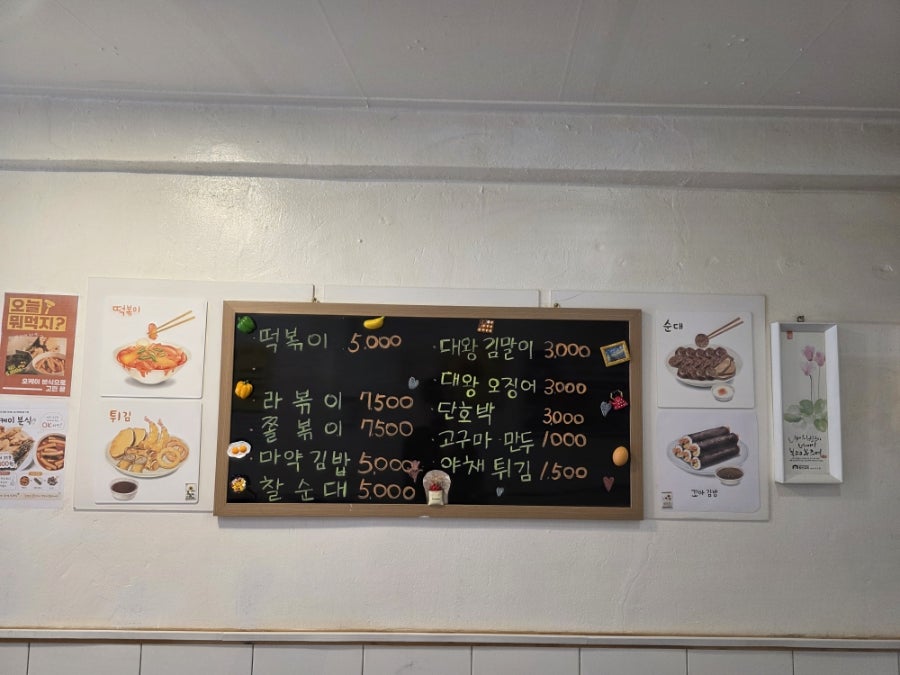 오늘
뭐먹지?
오케이 분식으로
고민 끝
케이 분식?
떡볶이
튀김
떡볶이 5.000
라볶이 7.500
쫄볶이 7.500
마약김밥 5.000
찰순대 5.000
대왕 김말이 3.000
대왕 오징어 3.000
단호박 3.000
고구마·만두 1.000
야채 튀김 1.500
순대
꼬마김밥